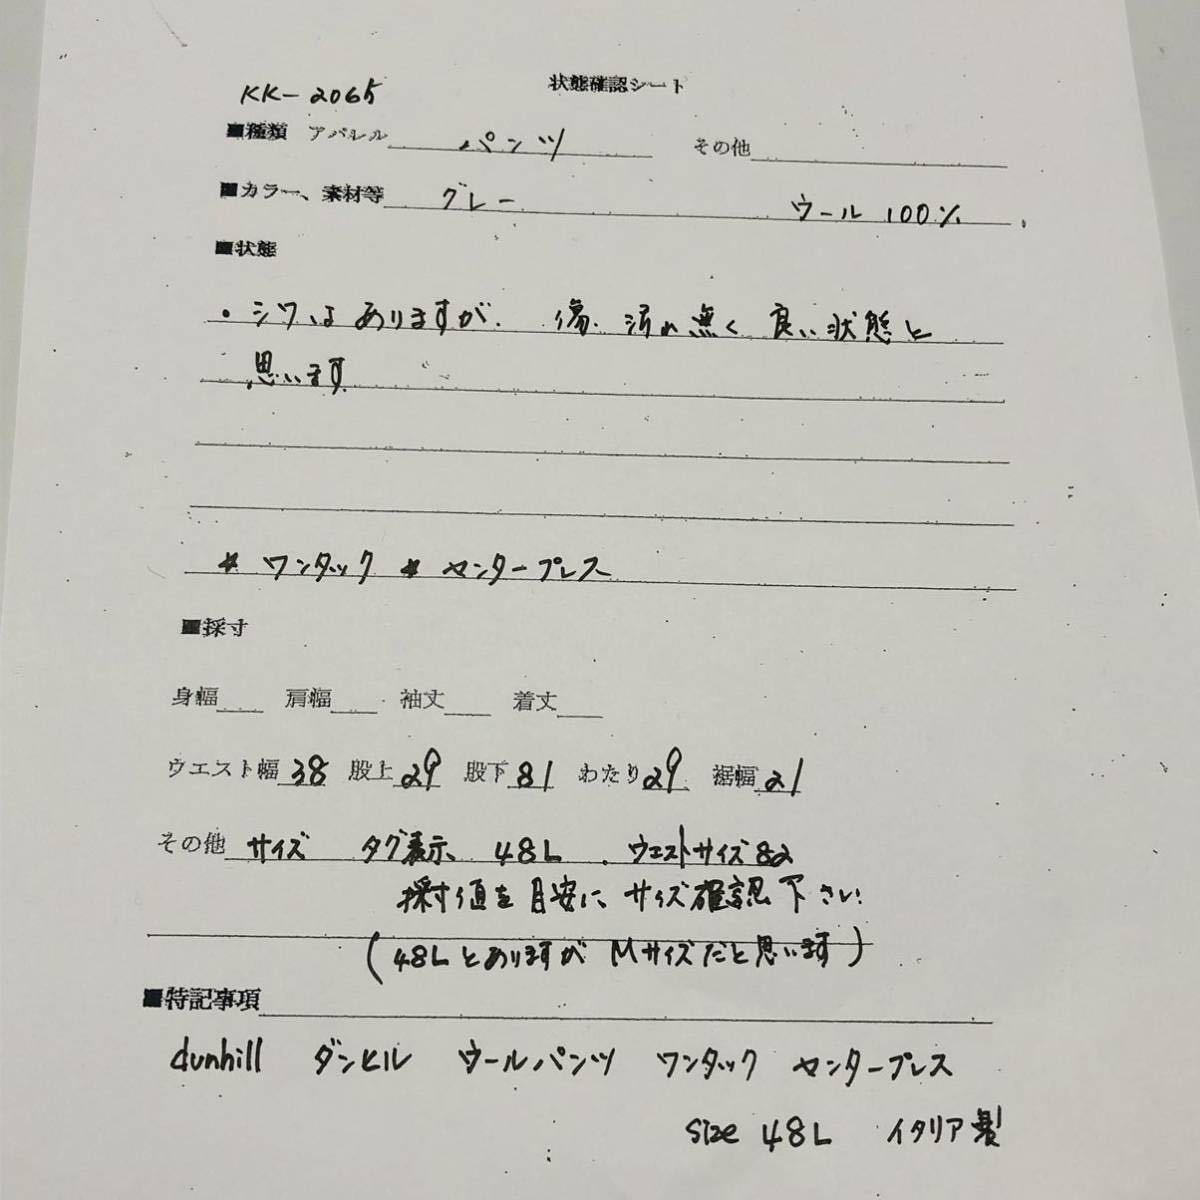 状態確認シート
KK-2065
■種類 アパレル パンツ その他
■カラー、素材等 グレー ウール 100%
■状態
・シワはありますが、傷、汚れ無く良い状態と
思います
* ワンタック * センタープレス
■採寸
身幅 肩幅 袖丈 着丈
ウエスト幅 38 股上 29 股下 81 わたり 29 裾幅 21
その他 サイズ タグ表示 48L ウエストサイズ82
採寸値を目安に、サイズ確認下さい
(48Lとありますが Mサイズだと思います)
■特記事項
dunhill ダンヒル ウールパンツ ワンタック センタープレス
size 48L イタリア製